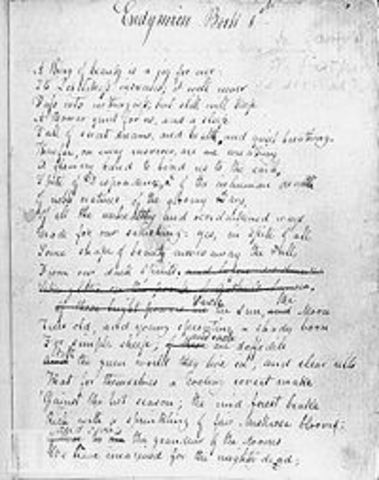 Endymion Book 1st
A thing of beauty is a joy for ever:
Its Loveliness increases; it will never
Pass into nothingness; but still will keep
A Bower quiet for us, and a sleep
Full of sweet dreams, and health, and quiet breathing.
Therefore, on every morrow, are we wreathing
A flowery band to bind us to the earth,
Spite of Despondence, of the inhuman dearth
Of noble natures, of the gloomy Days,
Of all the unhealthy and o'er darkened ways
Made for our searching: yes, in spite of all
Some shape of beauty moves away the Pall
From our dark Spirits.
of these bright powers Such the sun, the Moon
Trees old, and young sprouting a shady boon
For simple sheep; and such are daffodils
With the green world they live in; and clear rills
That for themselves a cooling covert make
'Gainst the hot season; the mid forest brake
Rich with a sprinkling of fair Muskrose blooms:
And such too the grandeur of the dooms
We have imagined for the mighty dead;